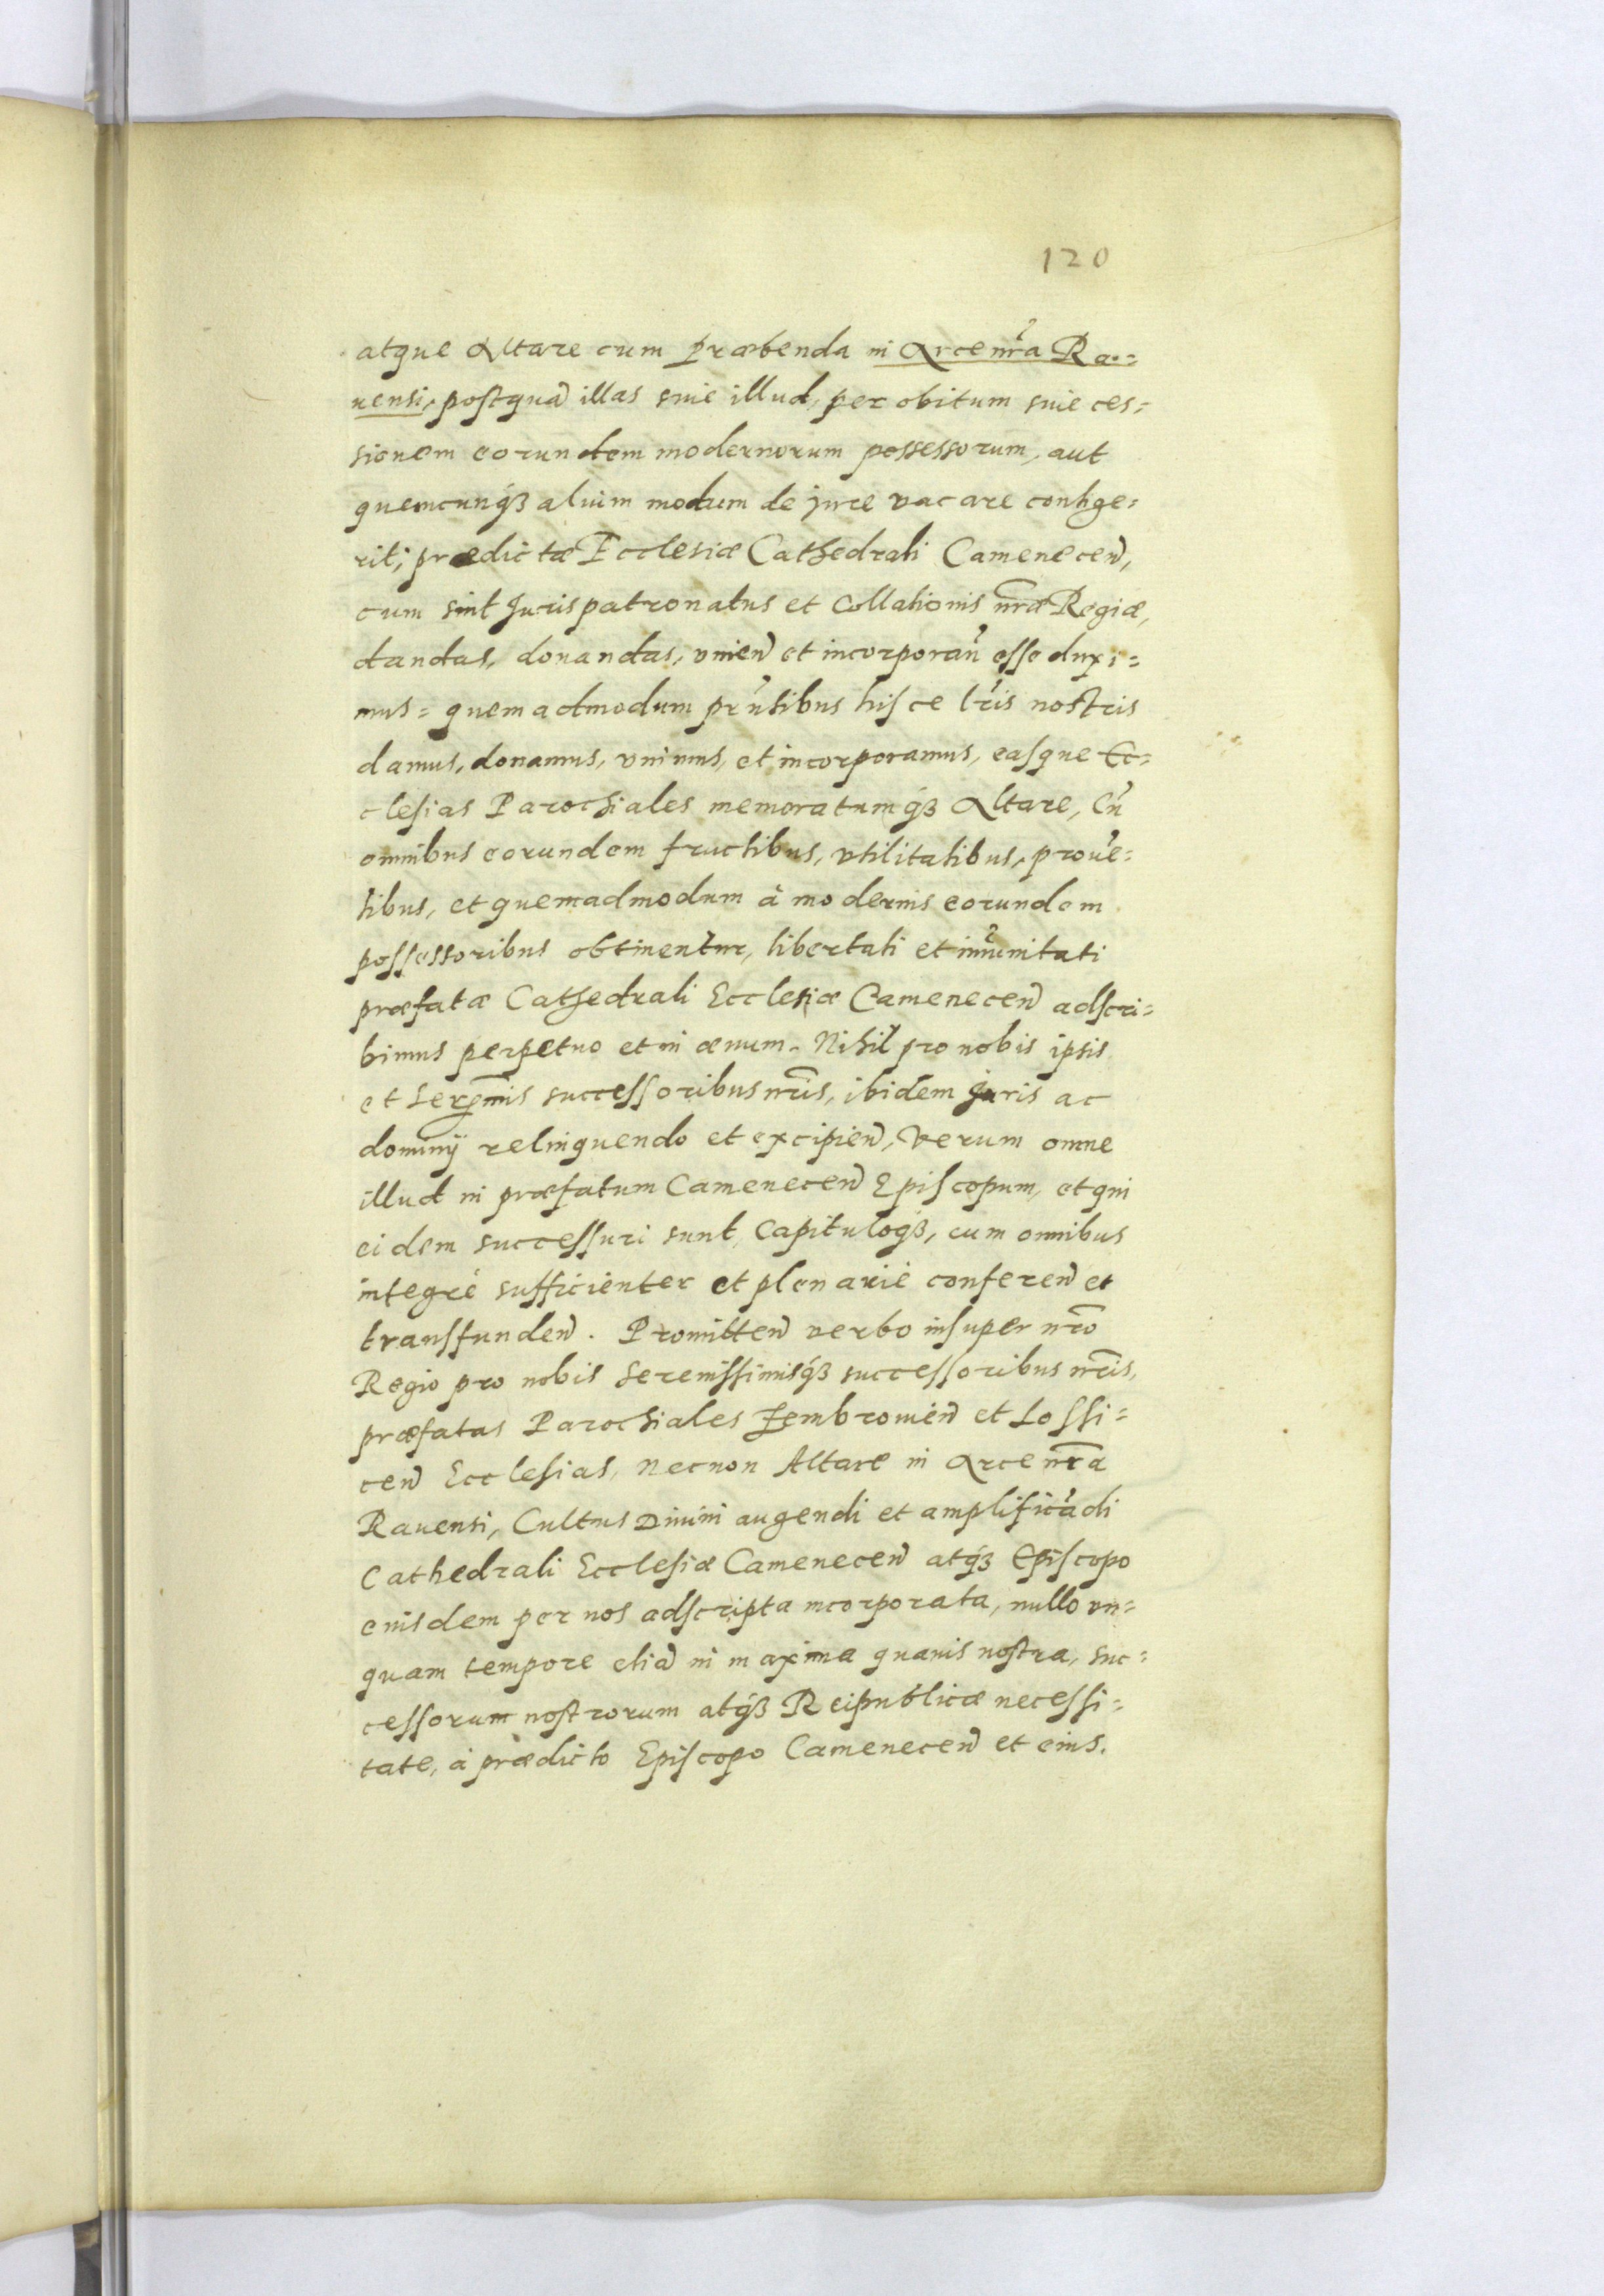 120
atque Altare cum præbenda in Arce nr̃a Ra=
uensi, postquã illas siue illud, per obitum siue ces=
sionem eorundem modernorum possessorum, aut
quemcunq́ȝ alium modum de jure vacare contige=
rit; prædictæ Ecclesiæ Cathedrali Camenecen̄,
cum sint Juris patronatus et Collationis nr̃æ Regiæ,
dandas, donandas, vnien̄ et incorporan̄ esse duxi=
mus= quemadmodum pr̃ntibus hisce lr̃is nostris
damus, donamus, vnimus, et incorporamus, easque Ec=
clesias Parochiales memoratumq́ȝ Altare, cũ
omnibus eorundem fructibus, vtilitatibus, prouẽ=
tibus, et quemadmodum à modernis eorundem
possessoribus obtinentur, libertati et im̃unitati
præfatæ Cathedrali Ecclesiæ Camenecen̄ adscri=
bimus perpetuo et in æuum. Nihil pro nobis ipsis
et Ser̃mis successoribus nr̃is, ibidem juris ac
dominij relinquendo et excipien̄, Verum omne
illud in præfatum Camenecen̄ Episcopum, et qui
eidem successuri sunt, Capituloq́ȝ, cum omnibus
integrè sufficienter et plenariè conferen̄ et
transfunden̄. Promitten̄ verbo insuper nr̃o
Regio pro nobis Serenissimisq́ȝ successoribus nr̃is,
præfatas Parochiales Zembrouien̄ et Lossi=
cen̄ Ecclesias, necnon Altare in Arce nr̃a
Rauensi, Cultus Diuini augendi et amplificãdi
Cathedrali Ecclesiæ Camenecen̄ atq́ȝ Episcopo
eiusdem per nos adscripta incorporata, nullo vn=
quam tempore etiã in maxima quauis nostra, suc=
cessorum nostrorum atq́ȝ Reipublicæ necessi=
tate, à prædicto Episcopo Camenecen̄ et eius.